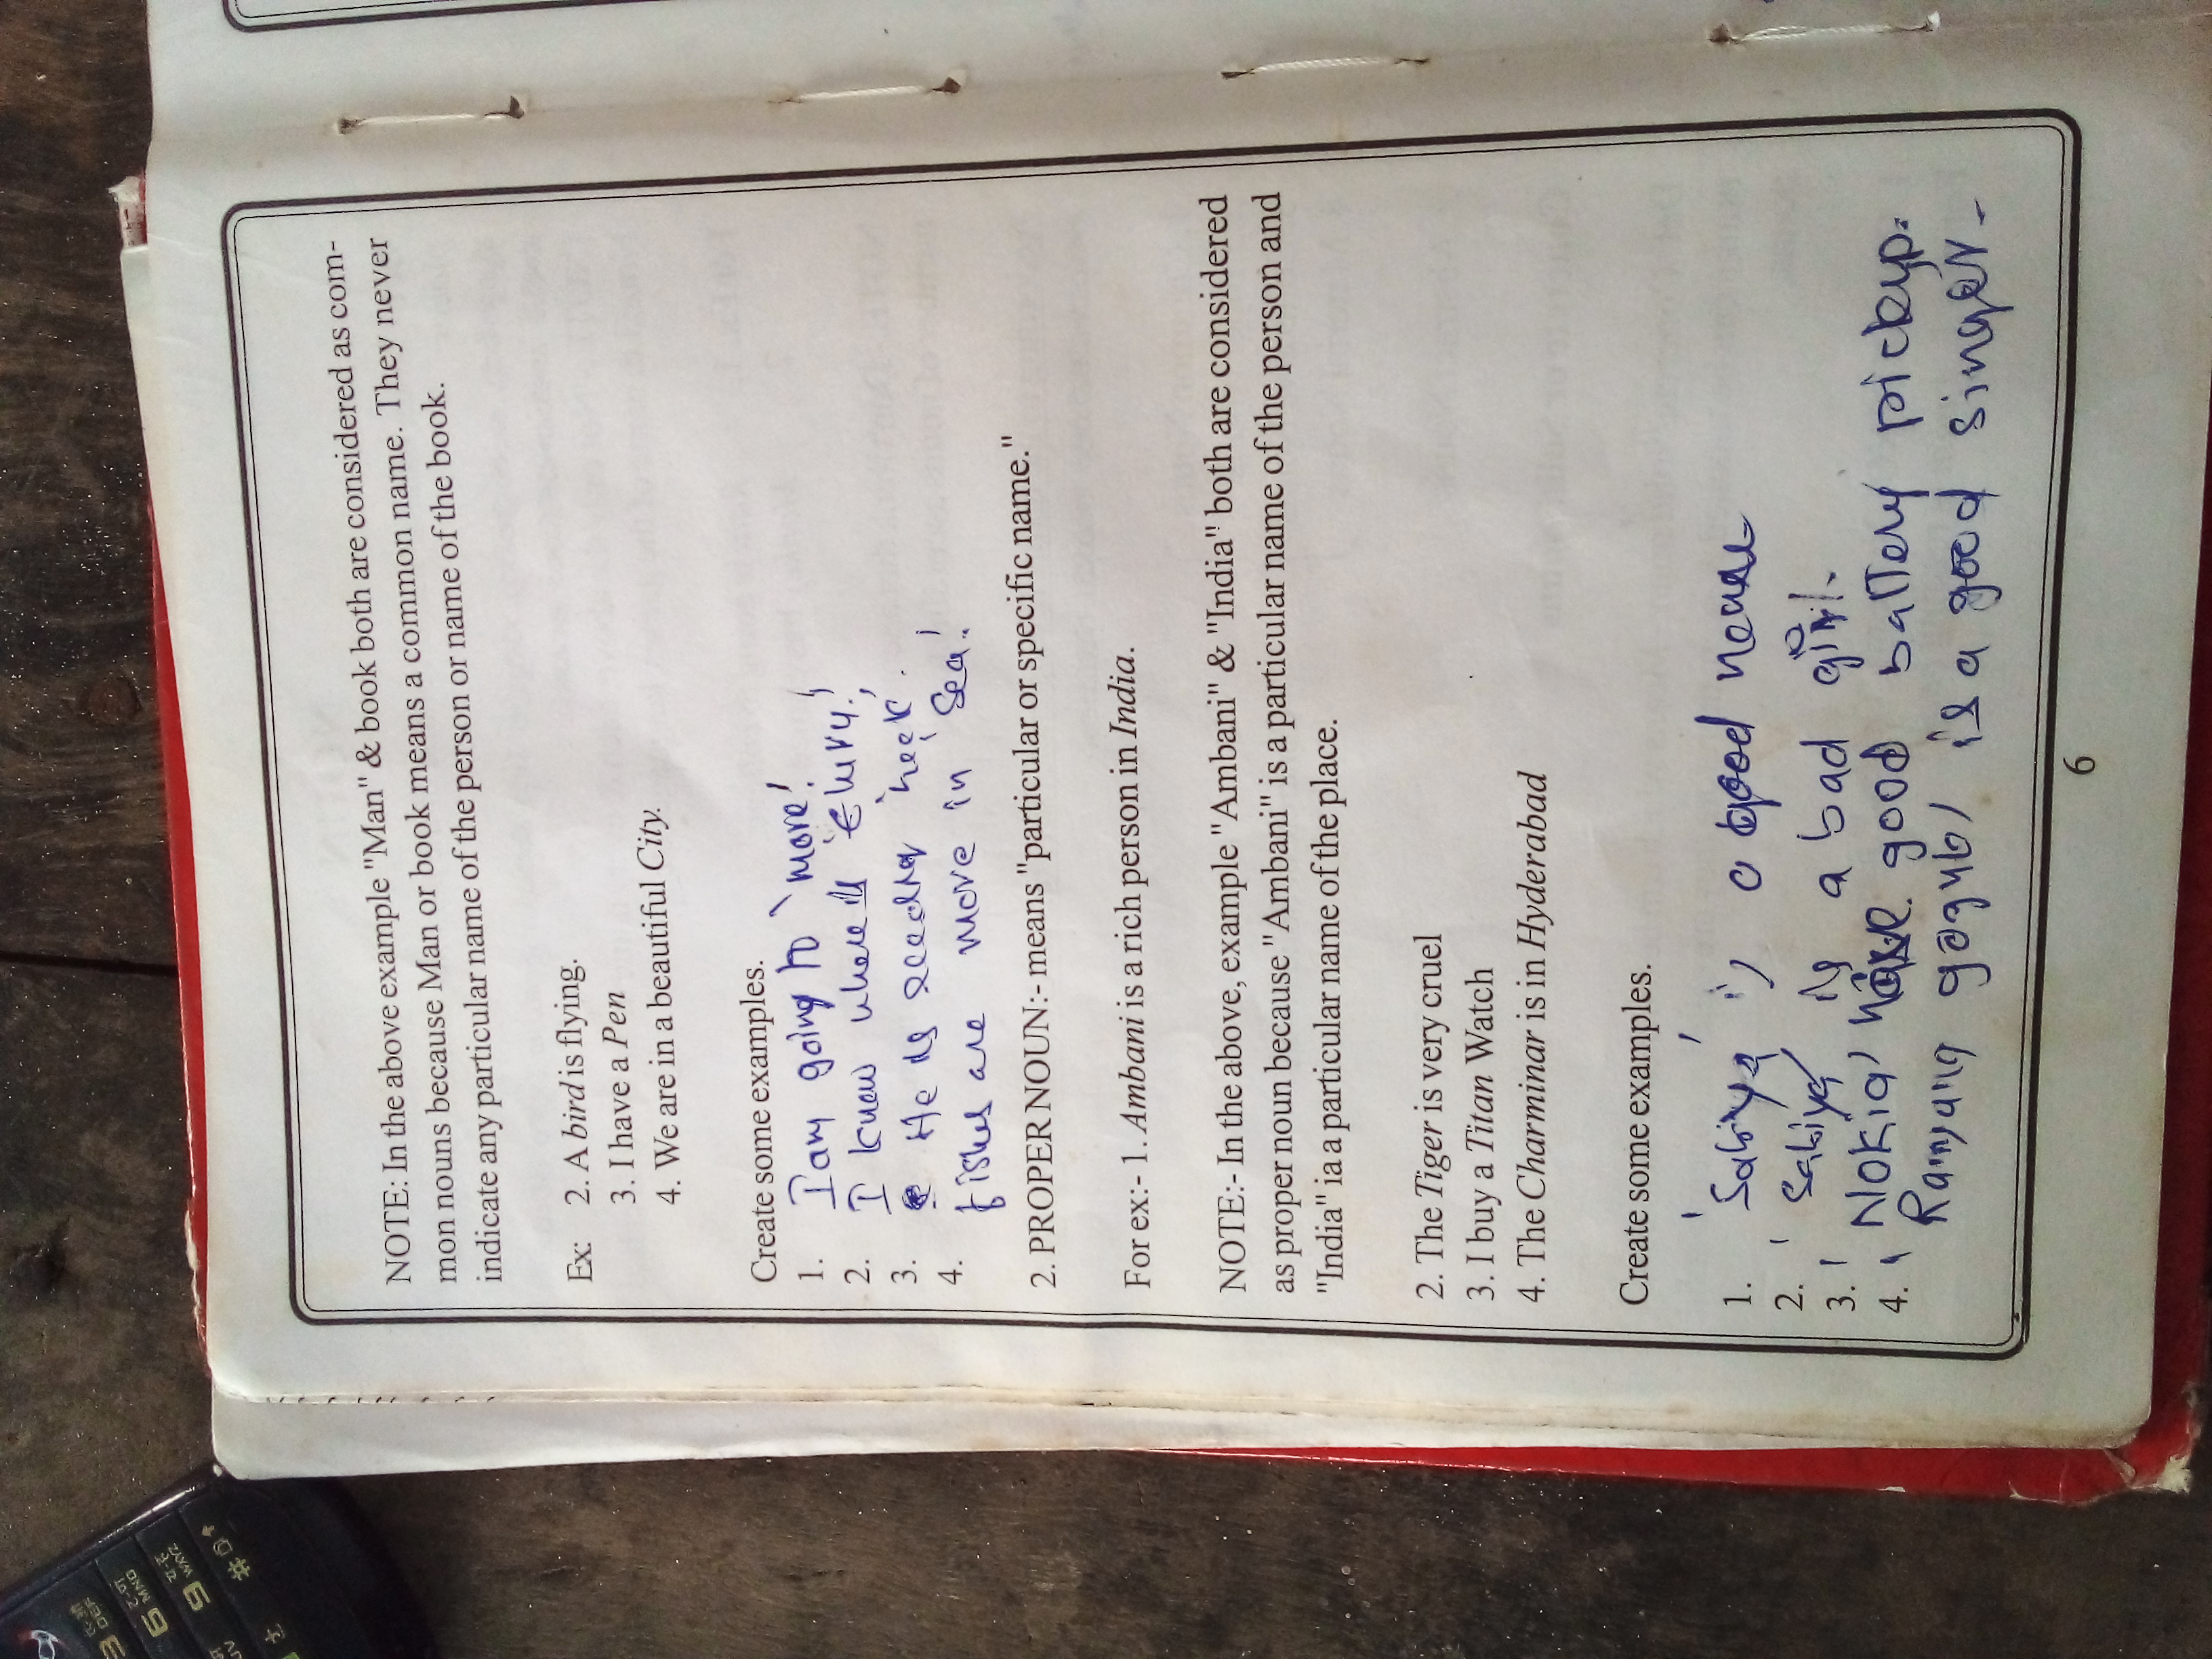 3 DEF
6 MNO
9 WXYZ
#
NOTE: In the above example "Man" & book both are considered as com-
mon nouns because Man or book means a common name. They never
indicate any particular name of the person or name of the book.
Ex: 2. A bird is flying.
3. I have a Pen
4. We are in a beautiful City.
Create some examples.
1. I am going to 'more'.
2. I know where is
3. He is reading
4. fishes are more in 'Sea'.
2. PROPER NOUN:- means "particular or specific name."
For ex:- 1. Ambani is a rich person in India.
NOTE:- In the above, example "Ambani" & "India" both are considered
as proper noun because "Ambani" is a particular name of the person and
"India" ia a particular name of the place.
2. The Tiger is very cruel
3. I buy a Titan Watch
4. The Charminar is in Hyderabad
Create some examples.
1. 'Sabiya' is a good
2. 'Sabiya' is a bad girl.
3. 'Nokia' have good battery pickup.
4. is a good singer.
6